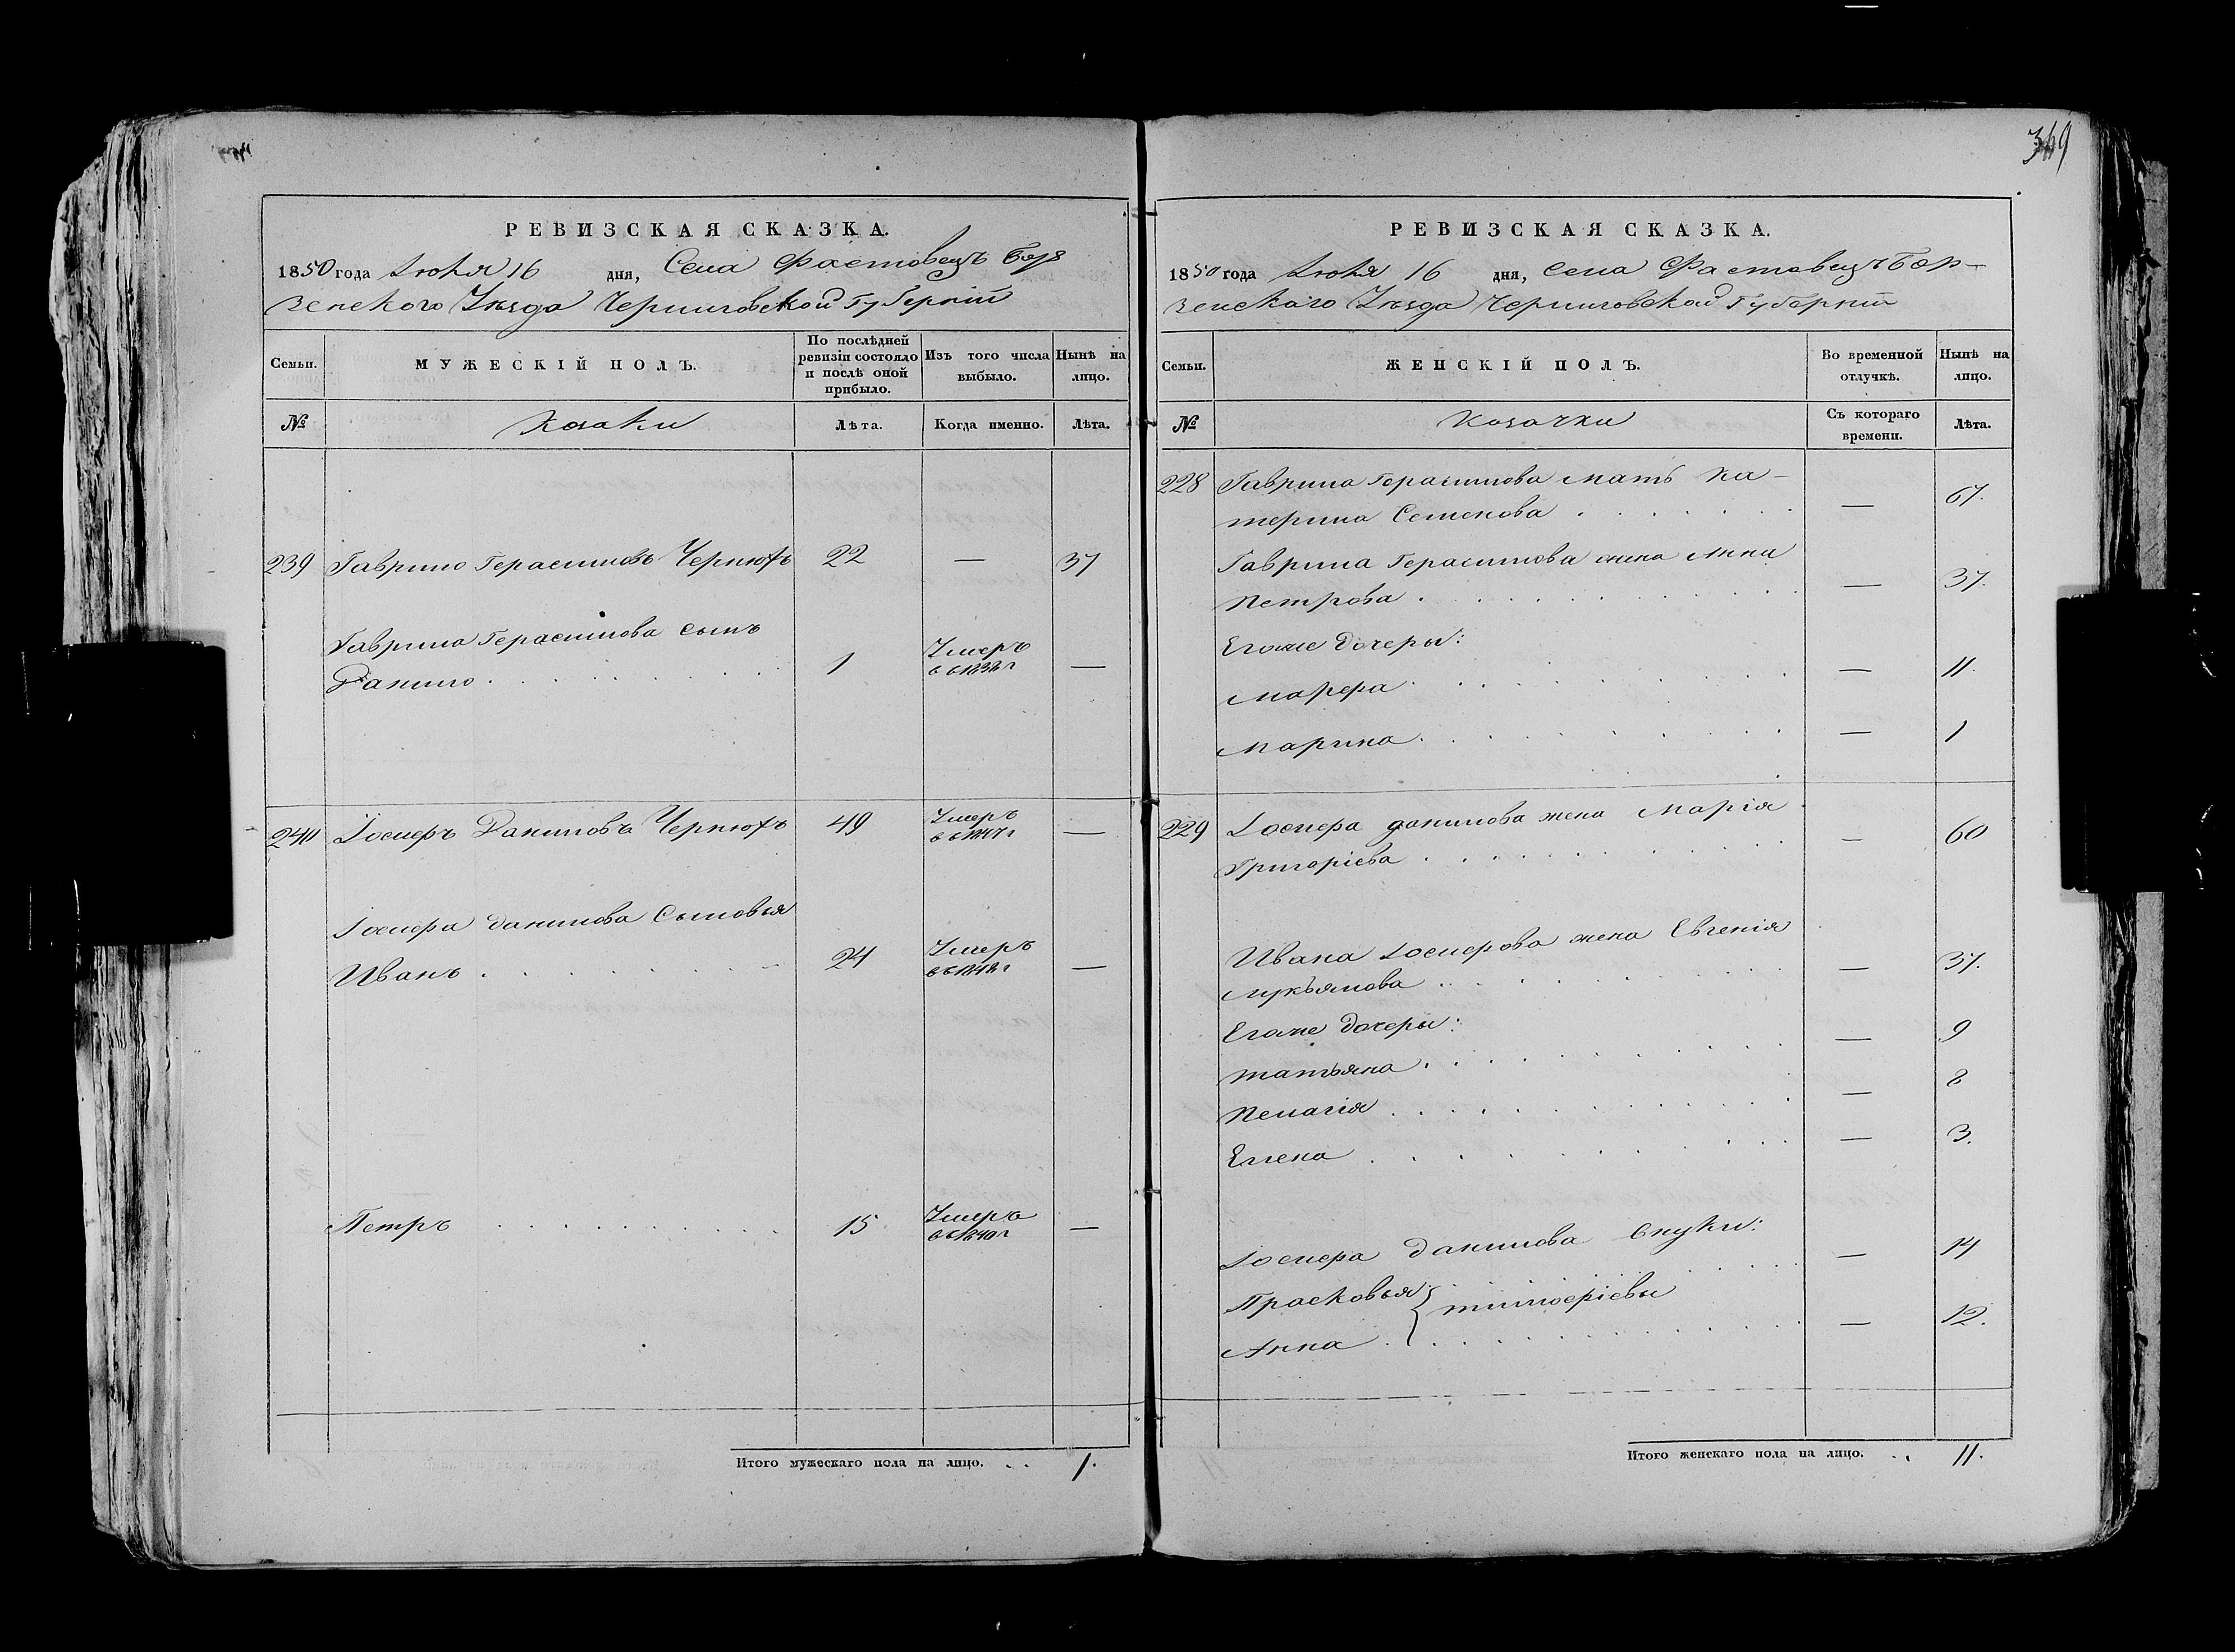 369
РЕВИЗСКАЯ СКАЗКА.
1850 года Іюля 16 дня, Села Фастовецъ Бор
зенского Уѣзда Черниговской Губерніи
Семьи.
МУЖЕСКІЙ ПОЛЪ.
По послѣдней ревизіи состояло и послѣ оной прибыло.
Изъ того числа выбыло.
Нынѣ на лицо.
№
Козаки
Лѣта.
Когда именно.
Лѣта.
239 Гаврило Герасимовъ Чернюхъ 22 — 37
Гаврила Герасимова сынъ
Данило 1 Умеръ въ —
240 Іосифъ Даниловъ Чернюхъ 49 Умеръ въ 1847 г —
Іосифа Данилова Сыновья
Иванъ 24 Умеръ въ 1848 г —
Петръ 15 Умеръ въ 1840 г —
Итого мужескаго пола на лицо. . . 1.
РЕВИЗСКАЯ СКАЗКА.
1850 года Іюля 16 дня, Села Фастовецъ Бор-
зенскаго Уѣзда Черниговской Губерніи
Семьи.
ЖЕНСКІЙ ПОЛЪ.
Во временной отлучкѣ.
Нынѣ на лицо.
№
Козачки
Съ котораго времени.
Лѣта.
228 Гаврила Герасимова мать Ка-
терина Семенова — 67.
Гаврила Герасимова жена Анна
Петрова — 37.
Егоже дочеры:
Марфа — 11.
Марина — 1
229 Іосифа Данилова жена Марія
Григоріева — 60
Ивана Іосифова жена Евгенія
Лукъянова — 37.
Егоже дочеры:
Татьяна — 9
Пелагія — 8
Елена — 3.
Іосифа Данилова Внуки:
Прасковья — 14
Тимоферіевы
Анна — 12.
Итого женскаго пола на лицо. . . 11.